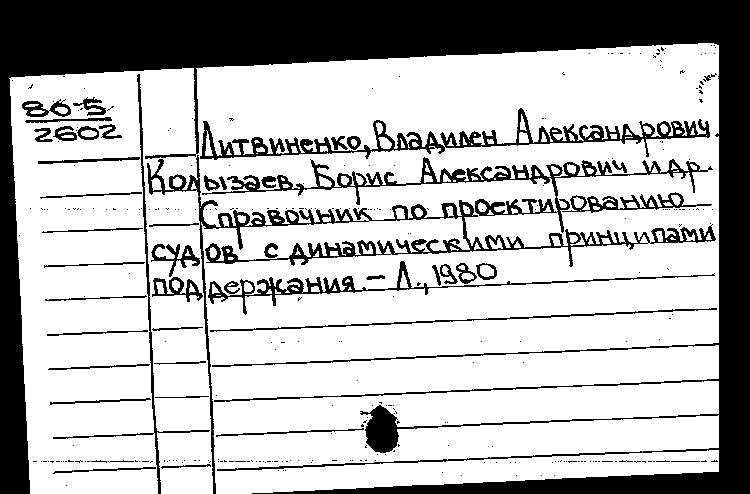 80-5
2602
Литвиненко, Владилен Александрович.
Колызаев, Борис Александрович и др.
Справочник по проектированию
судов с динамическими принципами
поддержания. – Л., 1980.